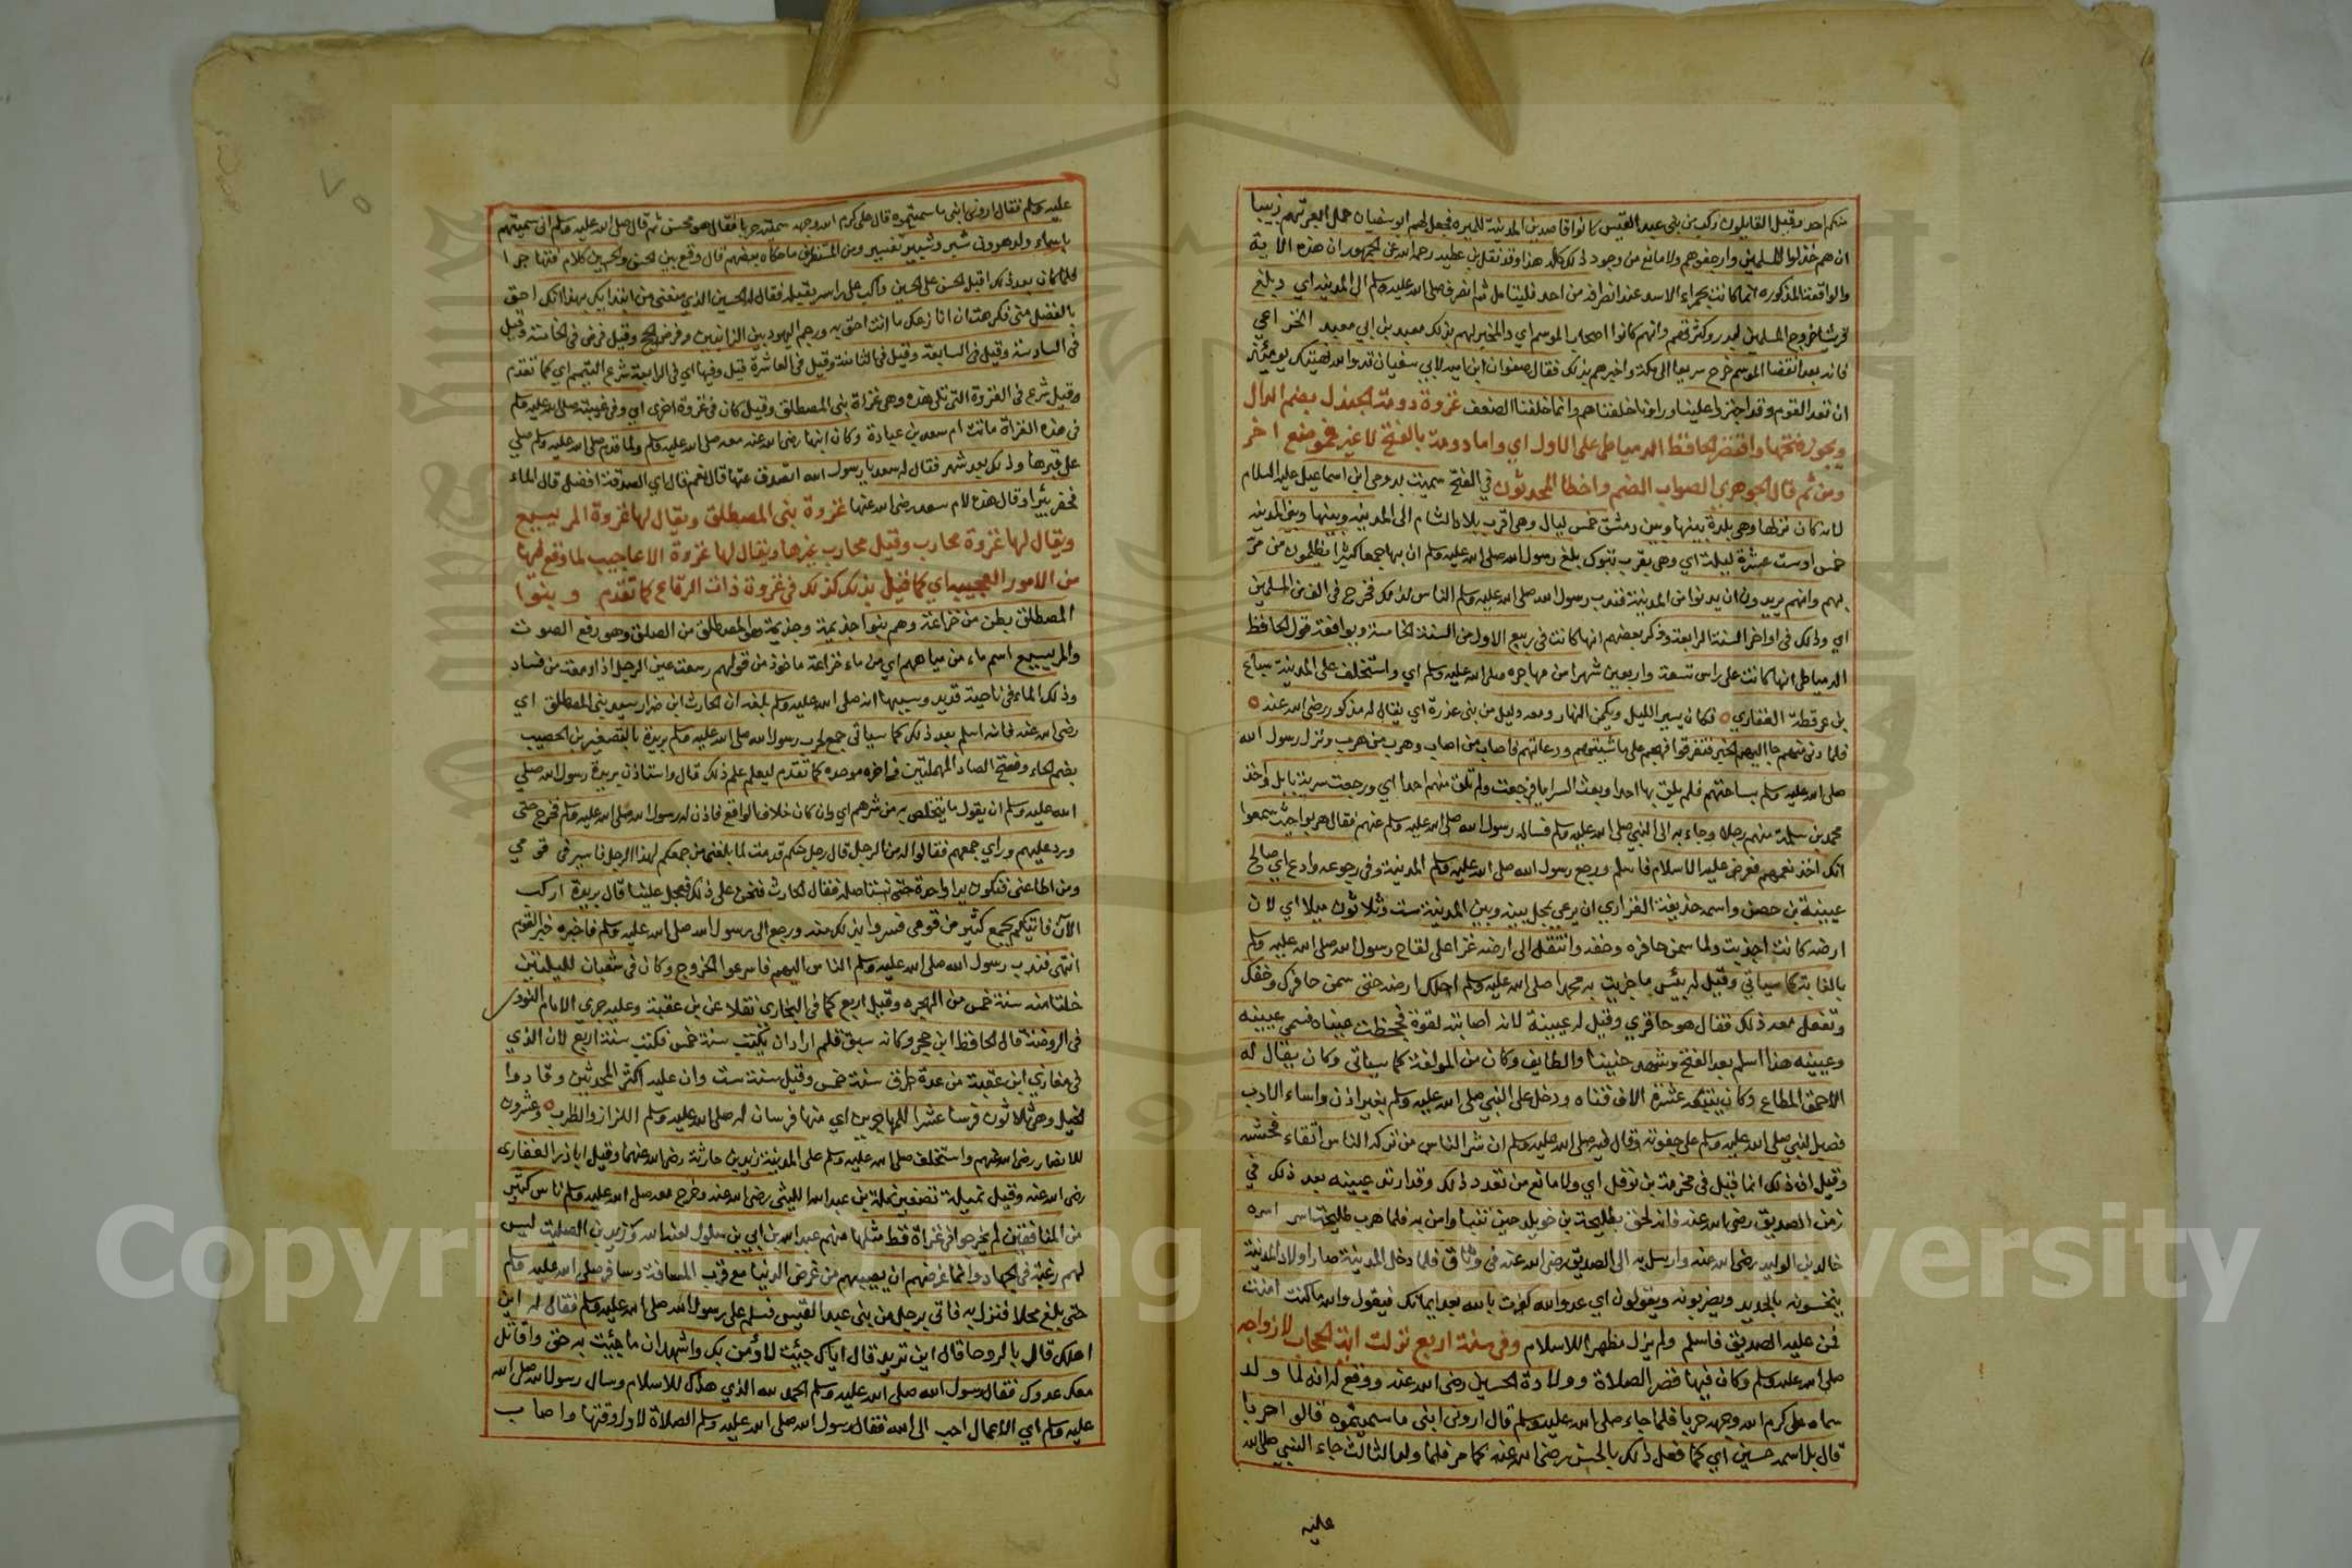 منكم احد وقيل القايلون ركب من بنى عبد القيس كانوا قاصدين المدينة للميره فجعل لهم ابو سفيان حمل العير تمر زبيبا
ان هم خذلوا المسلمين وارجفوهم ولا مانع من وجود ذلك كله هذا وقد نقل بن عطيه رحمه الله عن الجمهور ان هذه الاية
والواقعة المذكوره انما كانت بحمراء الاسد عند انصرافه من احد فليتامل ثم انصرف صلى الله عليه وسلم الى المدينه اي وبلغ
قريشا خروج المسلمين لبدر وكثرتهم وانهم كانوا اصحاب الموسم اي والمخبر لهم بذلك معبد بن ابي معبد الخزاعي
فانه بعد انقضا الموسم خرج سريعا الى مكة واخبرهم بذلك فقال صفوان ابن اميه لابي سفيان قد والله نهيتك يومئذ
ان تعد القوم وقد اجتروا علينا وراونا خلفناهم وانما خلفنا الضعف غزوة دومة الجندل بضم الدال
ويجوز فتحها واقتصر الحافظ الدمياطى على الاول اي واما دومة بالفتح لا غير فموضع اخر
ومن ثم قال الجوهري الصواب الضم واخطا المحدثون في الفتح سميت بدومى ابن اسماعيل عليه السلام
لانه كان نزلها وهى بلدة بينها وبين دمشق خمس ليال وهى اقرب بلاد الشام الى المدينه وبينها وبين المدينه
خمس او ست عشرة ليلة اي وهى بقرب تبوك بلغ رسول الله صلى الله عليه وسلم ان بها جمعا كثيرا يظلمون من مر
بهم وانهم يريدون ان يدنوا من المدينة فندب رسول الله صلى الله عليه وسلم الناس لذلك فخرج فى الف من المسلمين
اي وذلك فى اواخر السنة الرابعة وذكر بعضهم انها كانت فى ربيع الاول من السنة الخامسة ويوافقه قول الحافظ
الدمياطى انها كانت على راس تسعة واربعين شهرا من مهاجره صلى الله عليه وسلم اي واستخلف على المدينة سباع
بن عرفطة الغفاري فكان يسير الليل ويكمن النهار ومعه دليل من بنى عذرة اي يقال له مذكور رضى الله عنه
فلما دنى منهم جا اليهم الخبر فتفرقوا فهجم على ماشيتهم ورعاتهم فاصاب من اصاب وهرب من هرب ونزل رسول الله
صلى الله عليه وسلم بساحتهم فلم يلق بها احدا وبعث السرايا فرجعت ولم تلق منهم احدا اي ورجعت سرية بابل واخذ
محمد بن سلمة منهم رجلا وجاء به الى النبي صلى الله عليه وسلم فساله رسول الله صلى الله عليه وسلم عنهم فقال هربوا حيث سمعوا
انك اخذت نعمهم فعرض عليه الاسلام فاسلم ورجع رسول الله صلى الله عليه وسلم المدينة وفى رجوعه وادع اي صالح
عيينة بن حصن واسمه حذيفة الفزاري ان يرعى بمحل بينه وبين المدينة ست وثلاثون ميلا اي لان
ارضه كانت اجذبت ولما سمن حافره وخفه وانتقل الى ارضه غزا على لقاح رسول الله صلى الله عليه وسلم
بالغابة كما سياتي وقيل له بئس ما جزيت به محمدا صلى الله عليه وسلم احلك ارضه حتى سمن حافرك وخفك
وتفعل معه ذلك فقال هو حافري وقيل له عيينة لانه اصابته لقوة فجحظت عيناه فسمى عيينه
وعيينه هذا اسلم بعد الفتح وشهد حنينا والطايف وكان من المولفة كما سياتى وكان يقال له
الاحمق المطاع وكان يتبعه عشرة الاف قناه ودخل على النبى صلى الله عليه وسلم بغير اذن واساء الادب
فصبر النبى صلى الله عليه وسلم على جفوته وقال فيه صلى الله عليه وسلم ان شر الناس من تركه الناس اتقاء فحشه
وقيل ان ذلك انما قيل فى مخرمة بن نوفل اي ولا مانع من تعدد ذلك وقد ارتد عيينه بعد ذلك في
زمن الصديق رضى الله عنه فانه لحق بطليحة بن خويلد حين تنبا وامن به فلما هرب طليحة اسره
خالد بن الوليد رضى الله عنه وارسل به الى الصديق رضى الله عنه فى وثاق فلما دخل المدينة صار اولاد المدينة
ينخسونه بالحديد ويضربونه ويقولون اي عدو الله كفرت بالله بعد ايمانك فيقول والله ما كنت امنت
فمن عليه الصديق فاسلم ولم يزل مظهرا للاسلام وفى سنة اربع نزلت اية الحجاب لازواجه
صلى الله عليه وسلم وكان فيها قصر الصلاة وولادة الحسين رضى الله عنه ووقع له انه لما ولد
سماه على كرم الله وجهه حربا فلما جاء صلى الله عليه وسلم قال ارونى ابنى ما سميتموه قالوا حربا
قال بل اسمه حسين اي كما فعل ذلك بالحسن رضى الله عنه كما مر فلما ولد الثالث جاء النبي صلى الله
عليه
عليه وسلم فقال ارونى ابنى ما سميتموه قال على كرم الله وجهه سميته حربا فقال هو محسن ثم قال صلى الله عليه وسلم انى سميتهم
باسماء ولد هرون شبر وشبير ومشبر ومن المستظرف ما حكاه بعضهم قال وقع بين الحسن والحسين كلام فتهاجرا
فلما كان بعد ذلك اقبل الحسن على الحسين واكب على راسه يقبله فقال له الحسين الذي منعنى من ابتدايك بهذا انك احق
بالفضل منى فكرهت ان انازعك ما انت احق به ورجم اليهوديين الزانيين وفرض الحج وقيل فرض فى الخامسة وقيل
فى السادسة وقيل فى السابعة وقيل فى الثامنة وقيل فى العاشرة قيل وفيها اي فى الرابعة شرع التيمم اي كما تقدم
وقيل شرع فى الغزوة التى تلى هذه وهى غزاة بنى المصطلق وقيل كان فى غزوة اخرى اي وفى غيبته صلى الله عليه وسلم
فى هذه الغزاة ماتت ام سعد بن عبادة وكان ابنها رضى الله عنه معه صلى الله عليه وسلم ولما قدم صلى الله عليه وسلم صلى
على قبرها وذلك بعد شهر فقال له سعد يا رسول الله اتصدق عنها قال نعم قال اي الصدقة افضل قال الماء
فحفر بئرا وقال هذه لام سعد رضى الله عنها غزوة بنى المصطلق ويقال لها غزوة المريسيع
ويقال لها غزوة محارب وقيل محارب غيرها ويقال لها غزوة الاعاجيب لما وقع فيها
من الامور العجيبه اي كما قيل بذلك كذلك فى غزوة ذات الرقاع كما تقدم وبنوا
المصطلق بطن من خزاعة وهم بنوا جذيمة وجذيمة هو المصطلق من الصلق وهو رفع الصوت
والمريسيع اسم ماء من مياههم اي من ماء خزاعة ماخوذ من قولهم رسعت عين الرجل اذا دمعت من فساد
وذلك الماء فى ناحية قديد وسببها انه صلى الله عليه وسلم بلغه ان الحارث ابن ضرار سيد بنى المصطلق اي
رضى الله عنه فانه اسلم بعد ذلك كما سيأتى جمع لحرب رسول الله صلى الله عليه وسلم بريدة بالتصغير بن الحصيب
بضم الحاء وفتح الصاد المهملتين فى اخره موحده كما تقدم ليعلم علم ذلك قال واستاذن بريدة رسول الله صلى
الله عليه وسلم ان يقول ما يتخلص به من شرهم اي وان كان خلاف الواقع فاذن له رسول الله صلى الله عليه وسلم فخرج حتى
ورد عليهم وراي جمعهم فقالوا له من الرجل قال رجل منكم قدمت لما بلغنى من جمعكم لهذا الرجل فاسير فى قومي
ومن اطاعنى فنكون يدا واحدة حتى نستاصله فقال الحارث فنحن على ذلك فعجل علينا قال بريدة اركب
الآن فاتيكم بجمع كثير من قومى فسروا بذلك منه ورجع الى رسول الله صلى الله عليه وسلم فاخبره خبر القوم
انتهى فندب رسول الله صلى الله عليه وسلم الناس اليهم فاسرعوا الخروج وكان فى شعبان لليلتين
خلتا منه سنة خمس من الهجره وقيل اربع كما فى البخاري نقلا عن بن عقبة وعليه جرى الامام النووى
فى الروضة قال الحافظ ابن حجر وكانه سبق قلم اراد ان يكتب سنة خمس فكتب سنة اربع لان الذي
فى مغازي ابن عقبة من عدة طرق سنة خمس وقيل سنة ست وان عليه اكثر المحدثين وقادوا
الخيل وهى ثلاثون فرسا عشرا للمهاجرين اي منها فرسان له صلى الله عليه وسلم اللزاز والظرب وعشرون
للانصار رضى الله عنهم واستخلف صلى الله عليه وسلم على المدينة زيد بن حارثة رضى الله عنهما وقيل اباذر الغفارى
رضى الله عنه وقيل نميلة تصغير نملة بن عبد الله الليثى رضى الله عنه وخرج معه صلى الله عليه وسلم ناس كثير
من المنافقين لم يخرجوا فى غزاة قط مثلها منهم عبد الله بن ابي بن سلول لعنه الله وزيد بن الصليت ليس
لهم رغبة فى الجهاد وانما غرضهم ان يصيبهم من غرض الدنيا مع قرب المسافة وسار صلى الله عليه وسلم
حتى بلغ محلا فنزل به فاتي برجل من بنى عبد القيس فسلم على رسول الله صلى الله عليه وسلم فقال له اين
اهلك قال بالروحا قال اين تريد قال اياك جيئت لاؤمن بك واشهد ان ما جيئت به حق واقاتل
معك عدوك فقال رسول الله صلى الله عليه وسلم الحمد لله الذي هداك للاسلام وسال رسول الله صلى الله
عليه وسلم اي الاعمال احب الى الله فقال رسول الله صلى الله عليه وسلم الصلاة لاول وقتها واصاب
Copyright © King Saud University